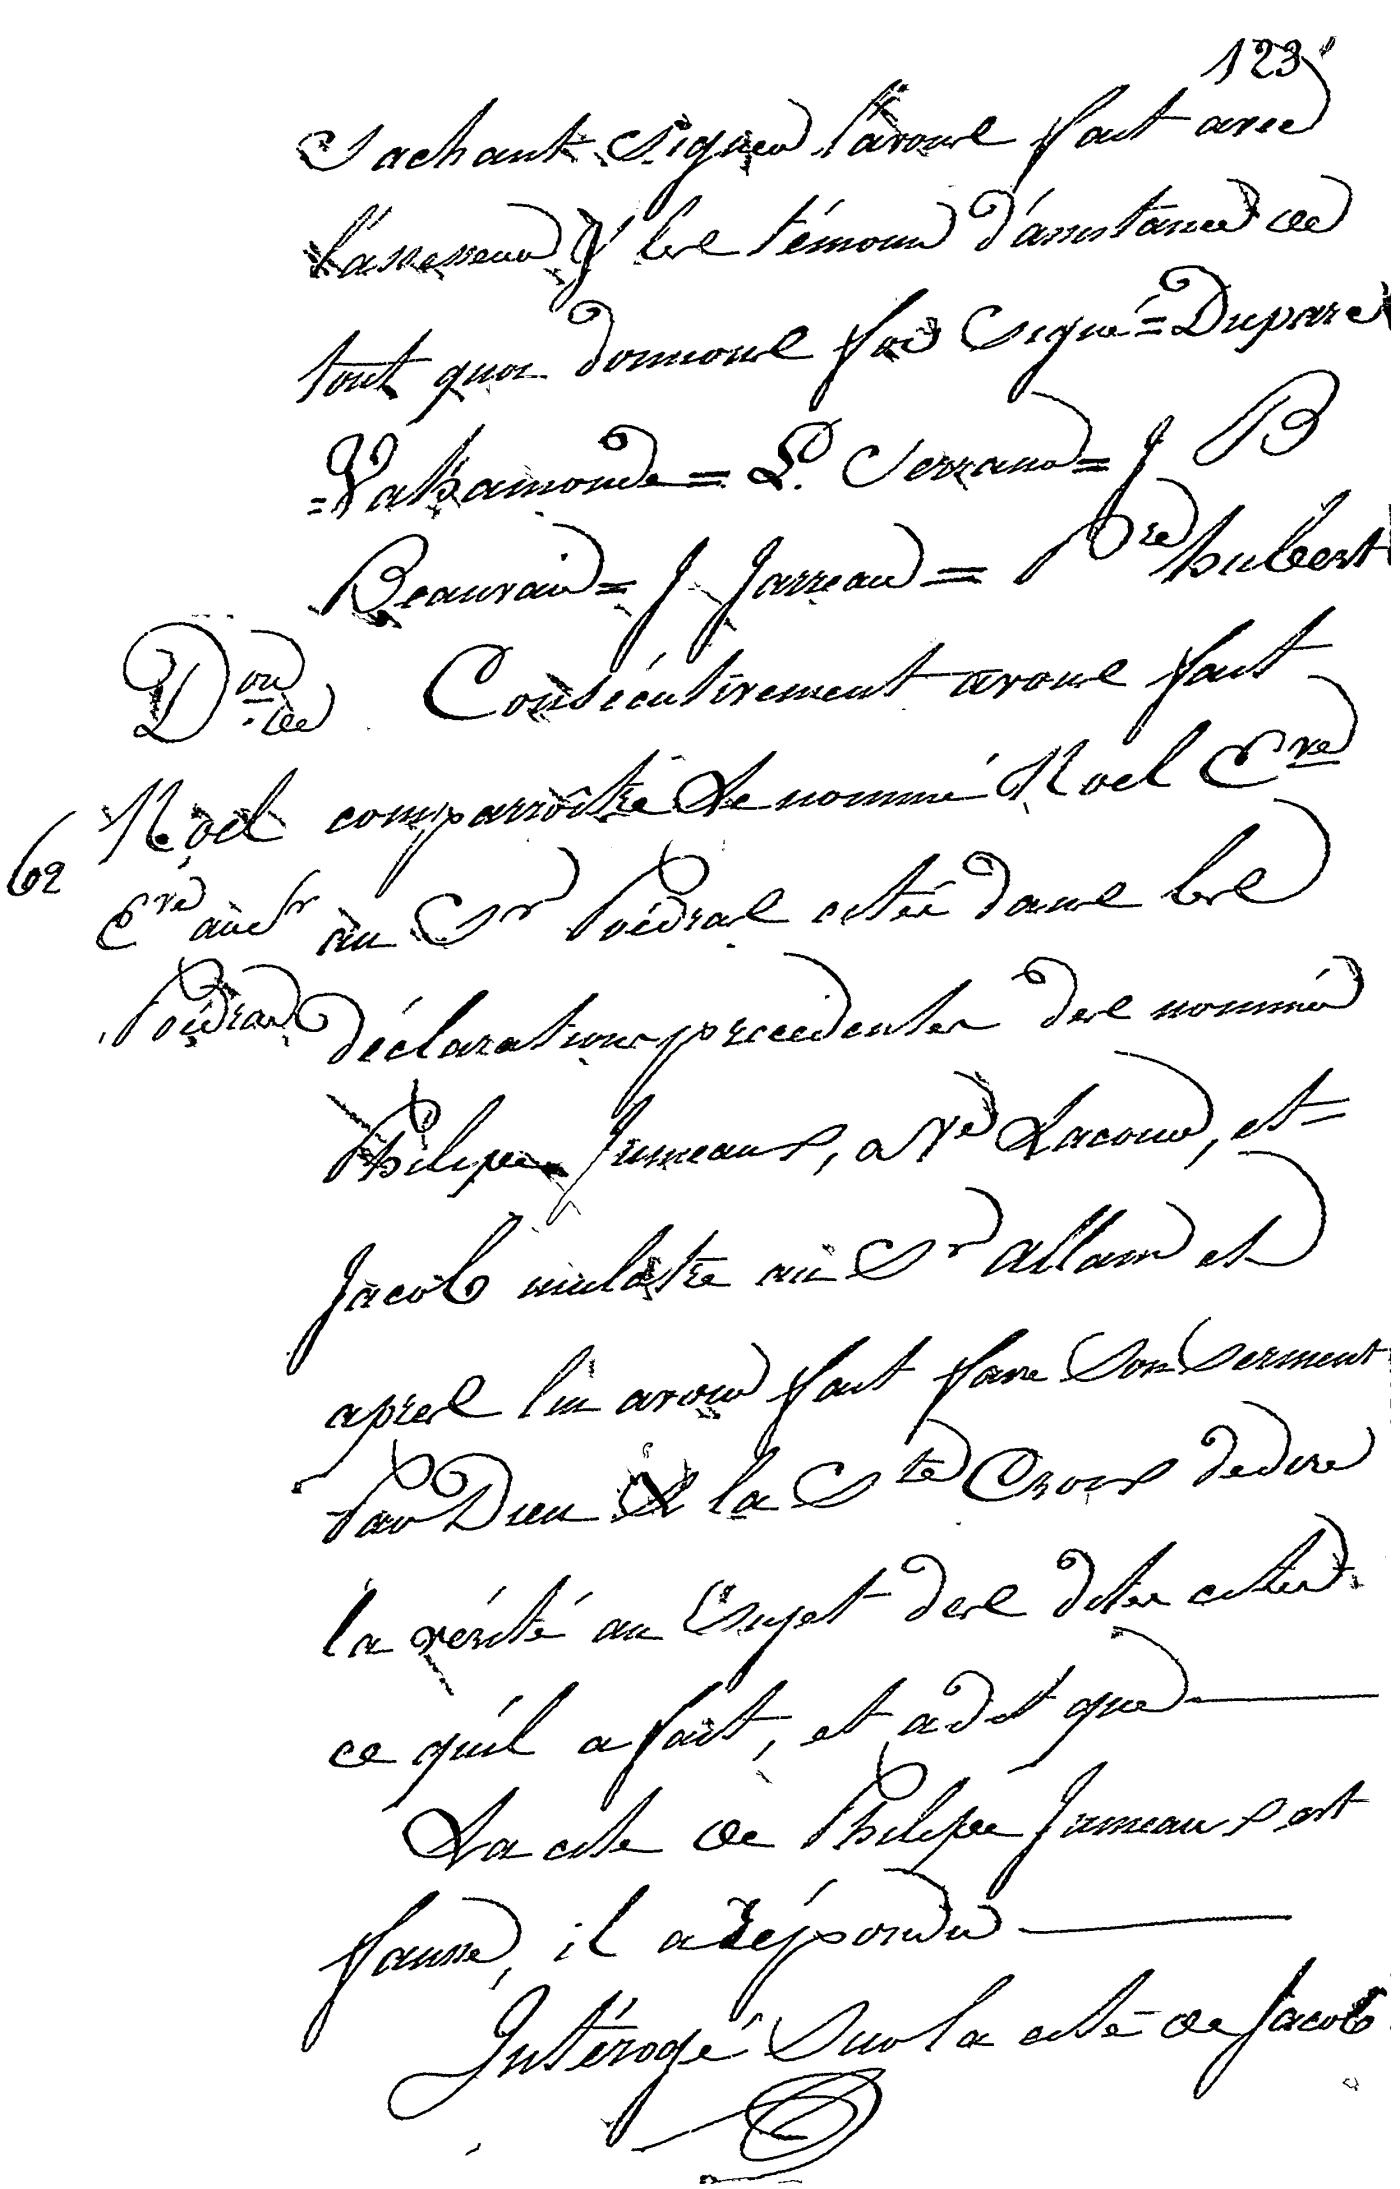 123
Sachant Signer l'avons fait avec
l'assesseur & les témoins d'assistance de
tout quoi donnons foi Signé = Duparc
= Valsamonde = L. Serrano = J B
Beauvais = J Jarreau = Pre hubert
Don de
Noel
Eve au Sr
Poidras
62
Consécutivement avons fait
comparroître Le nommé Noel Eve
au Sr Poidras cité dans les
déclarations precedentes des nommé
Philipe Jumeaux, a Ve Lacour, et
Jacob mulatre au Sr allain et
apres lui avoir fait faire Son Serment
Par Dieu & la Ste Croix de dire
la vérité au Sujet des dites cites
ce qu'il a fait, et a dit que
La cite de Philipe Jumeaux est
fausse, il a répondu
Intérogé Sur la cite de Jacob